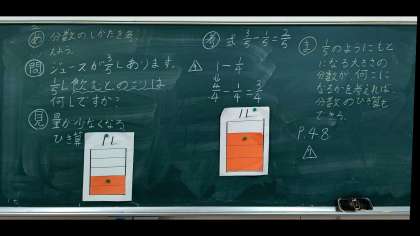 め 分数のひき方を考
えよう。
問 ジュースが3/5Lあります。
1/5L飲むとのこりは
何Lですか?
見 量が少なくなる
ひき算
1L
考 式 3/5-1/5=2/5
⚠ 1-1/4
↓
4/4-1/4=3/4
1L
ま 1/5のようにもと
になる大きさの
分数が何こに
なるかを考えれば
分数のひき算も
できる。
P.48
⚠